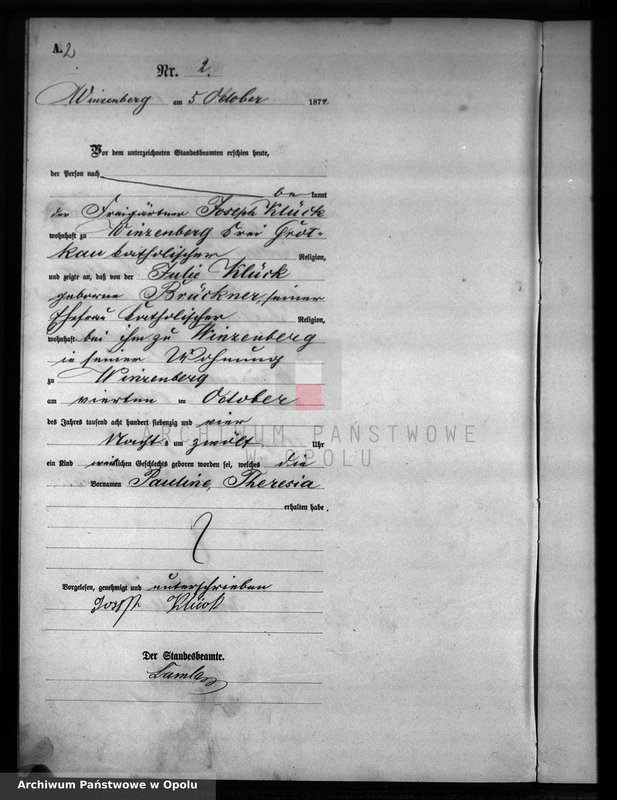 A. 2
Nr. 2.
Winzenberg am 5 October 1874.
Vor dem unterzeichneten Standesbeamten erschien heute,
der Person nach
be kannt
der Freigärtner Joseph Klück
wohnhaft zu Winzenberg Kreis Grot-
kau katholischer Religion,
und zeigte an, daß von der Julie Klück
geborne Brückner, seiner
Ehefrau katholischer Religion,
wohnhaft bei ihm zu Winzenberg
in seiner Wohnung
zu Winzenberg
am vierten ten October
des Jahres tausend acht hundert siebenzig und vier
Nachts um zwölf Uhr
ein Kind weiblichen Geschlechts geboren worden sei, welches die
Vornamen Pauline, Theresia
erhalten habe.
Vorgelesen, genehmigt und unterschrieben
Joseph Klück
Der Standesbeamte.
ARCHIWUM PAŃSTWOWE
W OPOLU
Archiwum Państwowe w Opolu